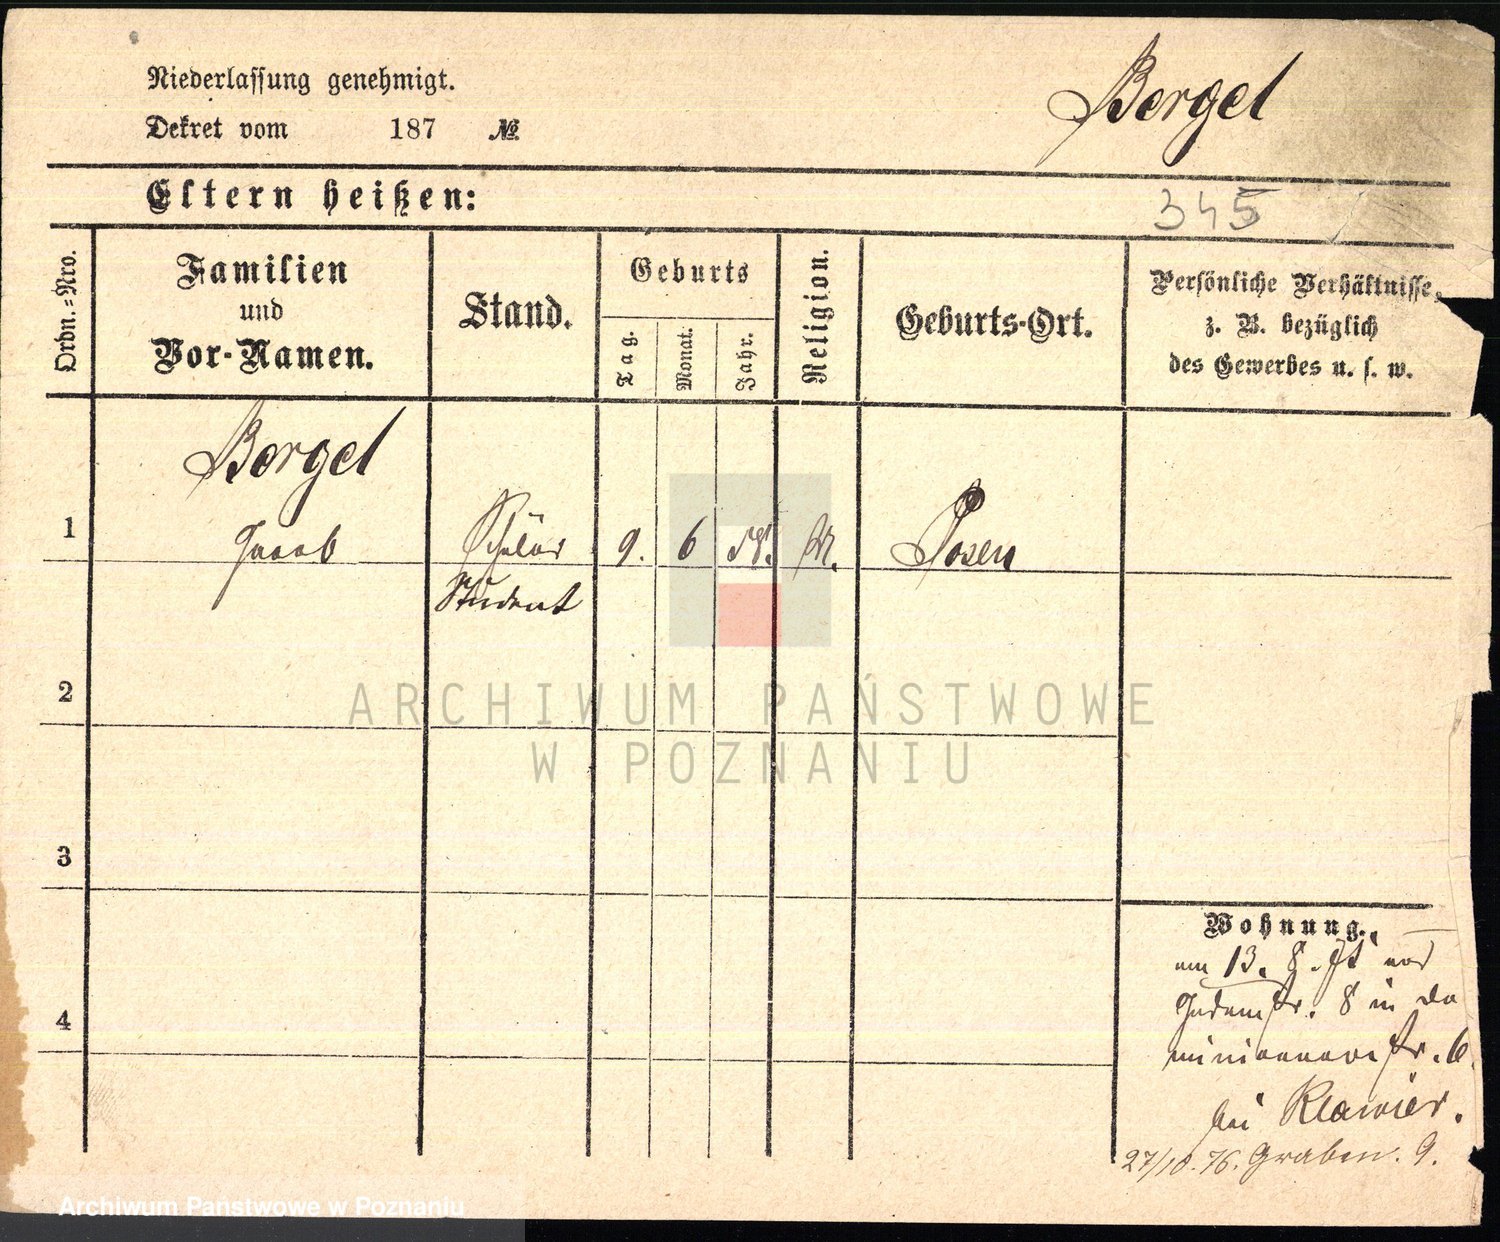 Niederlassung genehmigt.
Dekret vom 187 №
Bergel
Eltern heißen:
345
Ordn.=Nro.
Familien
und
Vor-Namen.
Stand.
Geburts
Tag.
Monat.
Jahr.
Religion.
Geburts-Ort.
Persönliche Verhältnisse,
z. B. bezüglich
des Gewerbes u. s. w.
Bergel
1
Jacob
Schüler
9.
6
58.
M.
Posen
Student
2
ARCHIWUM PAŃSTWOWE
W POZNANIU
3
Wohnung.
am 13. 8. 75 von
Judenstr. 8 in Do
4
minicanerstr. 6.
bei Klawier.
27/10. 76. Graben. 9.
Archiwum Państwowe w Poznaniu